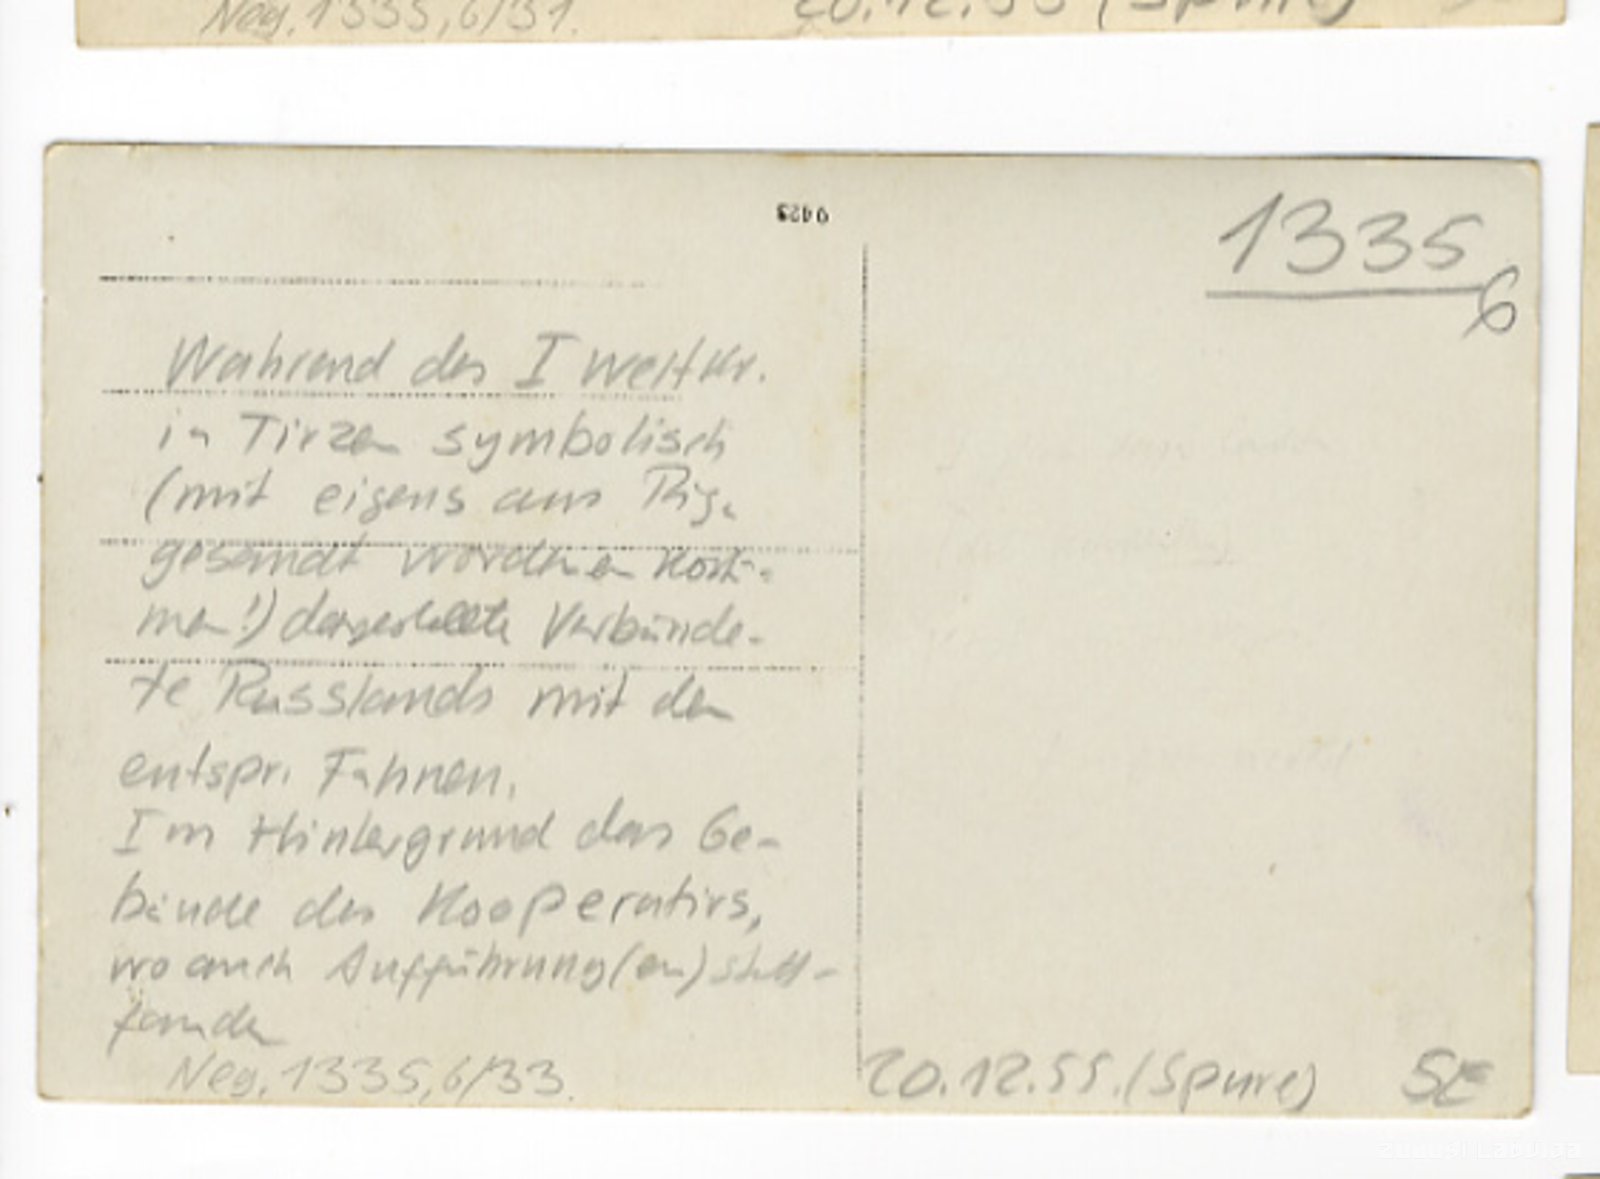 Neg. 1335,6/31.
20.12.55 (Spure)
0423
1335
6
Während des I Weltkr.
in Tirzen symbolisch
(mit eigens aus Riga
gesandt wordenen Kostü-
men!) dargestellte Verbünde-
te Russlands mit den
entspr. Fahnen.
Im Hintergrund das Ge-
bäude des Kooperativs,
wo auch Aufführung(en) statt-
fanden
Neg. 1335,6/33.
20.12.55. (Spure)
SE